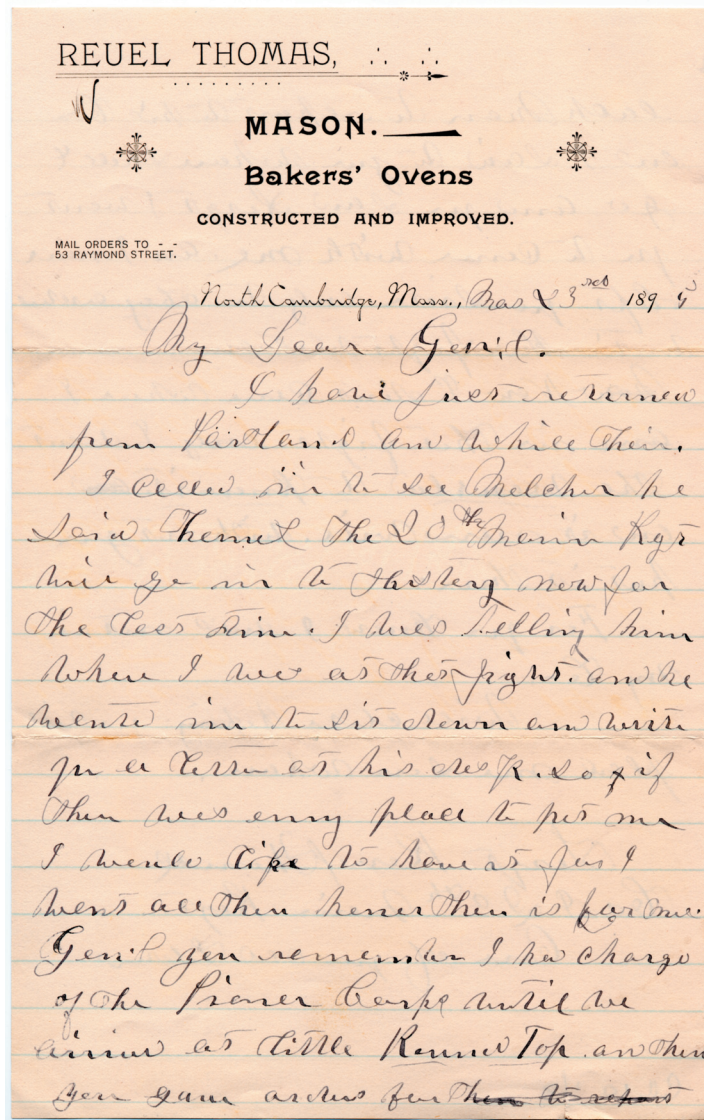 REUEL THOMAS,
MASON.
Bakers' Ovens
CONSTRUCTED AND IMPROVED.
MAIL ORDERS TO - -
53 RAYMOND STREET.
North Cambridge, Mass., Mar 23 red 1895
My Dear Gen'l.
I have just returned
from Portland and while their.
I called in to see Melcher he
said themel the 20th Maine Rgt
will go in to History now for
the last time. I was telling him
where I was at that fight. and he
wante me to sit down and write
you a letter at his desk. so if
their was enny place to put me
I would like to have it for I
want all then honer then is for me.
Gen'l you remember I had charge
of the Pioner Corps until we
arrived at little Round Top. and then
you gave orders for them to report